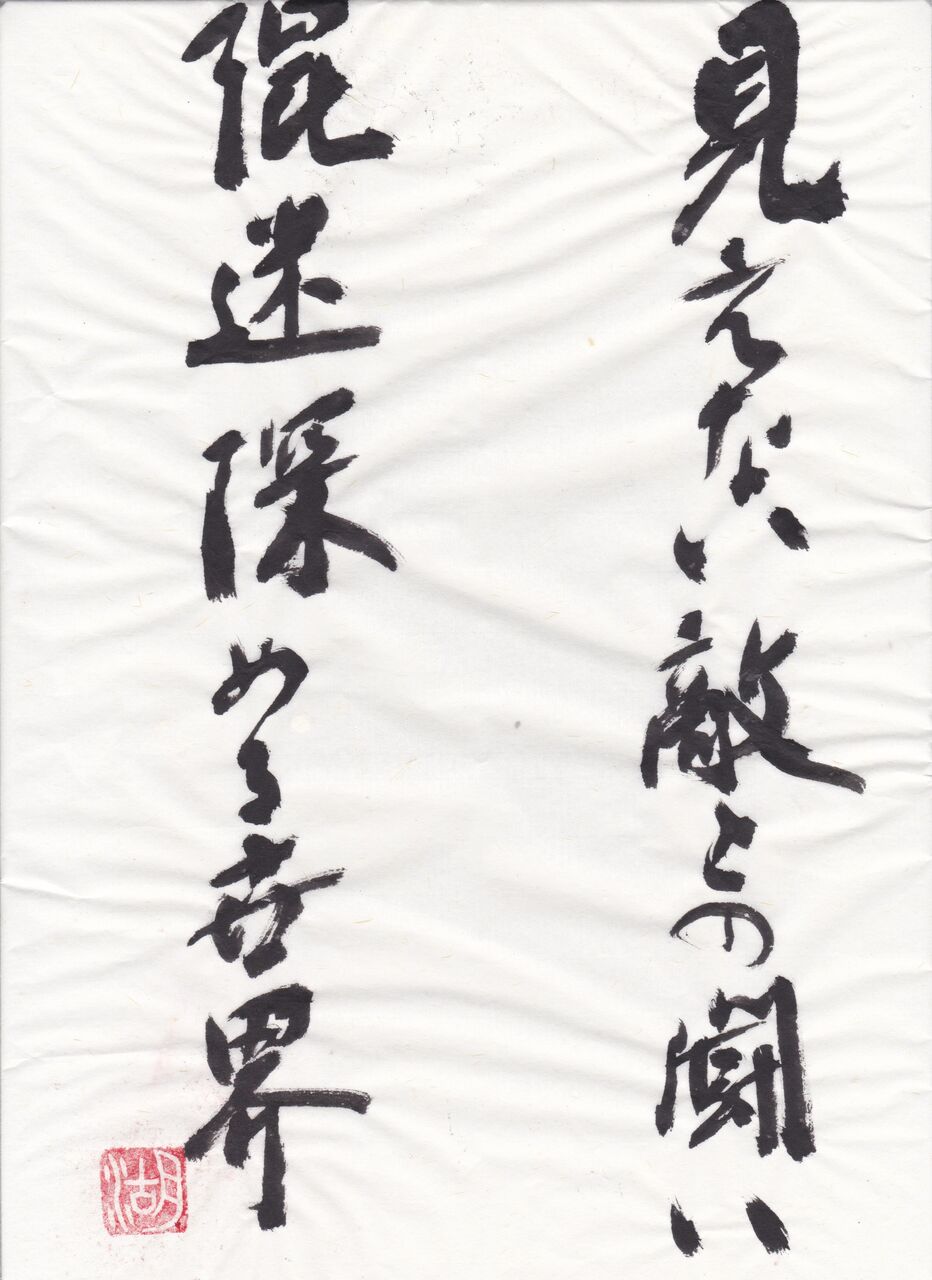 見えない敵との闘い
混迷深める世界
湖